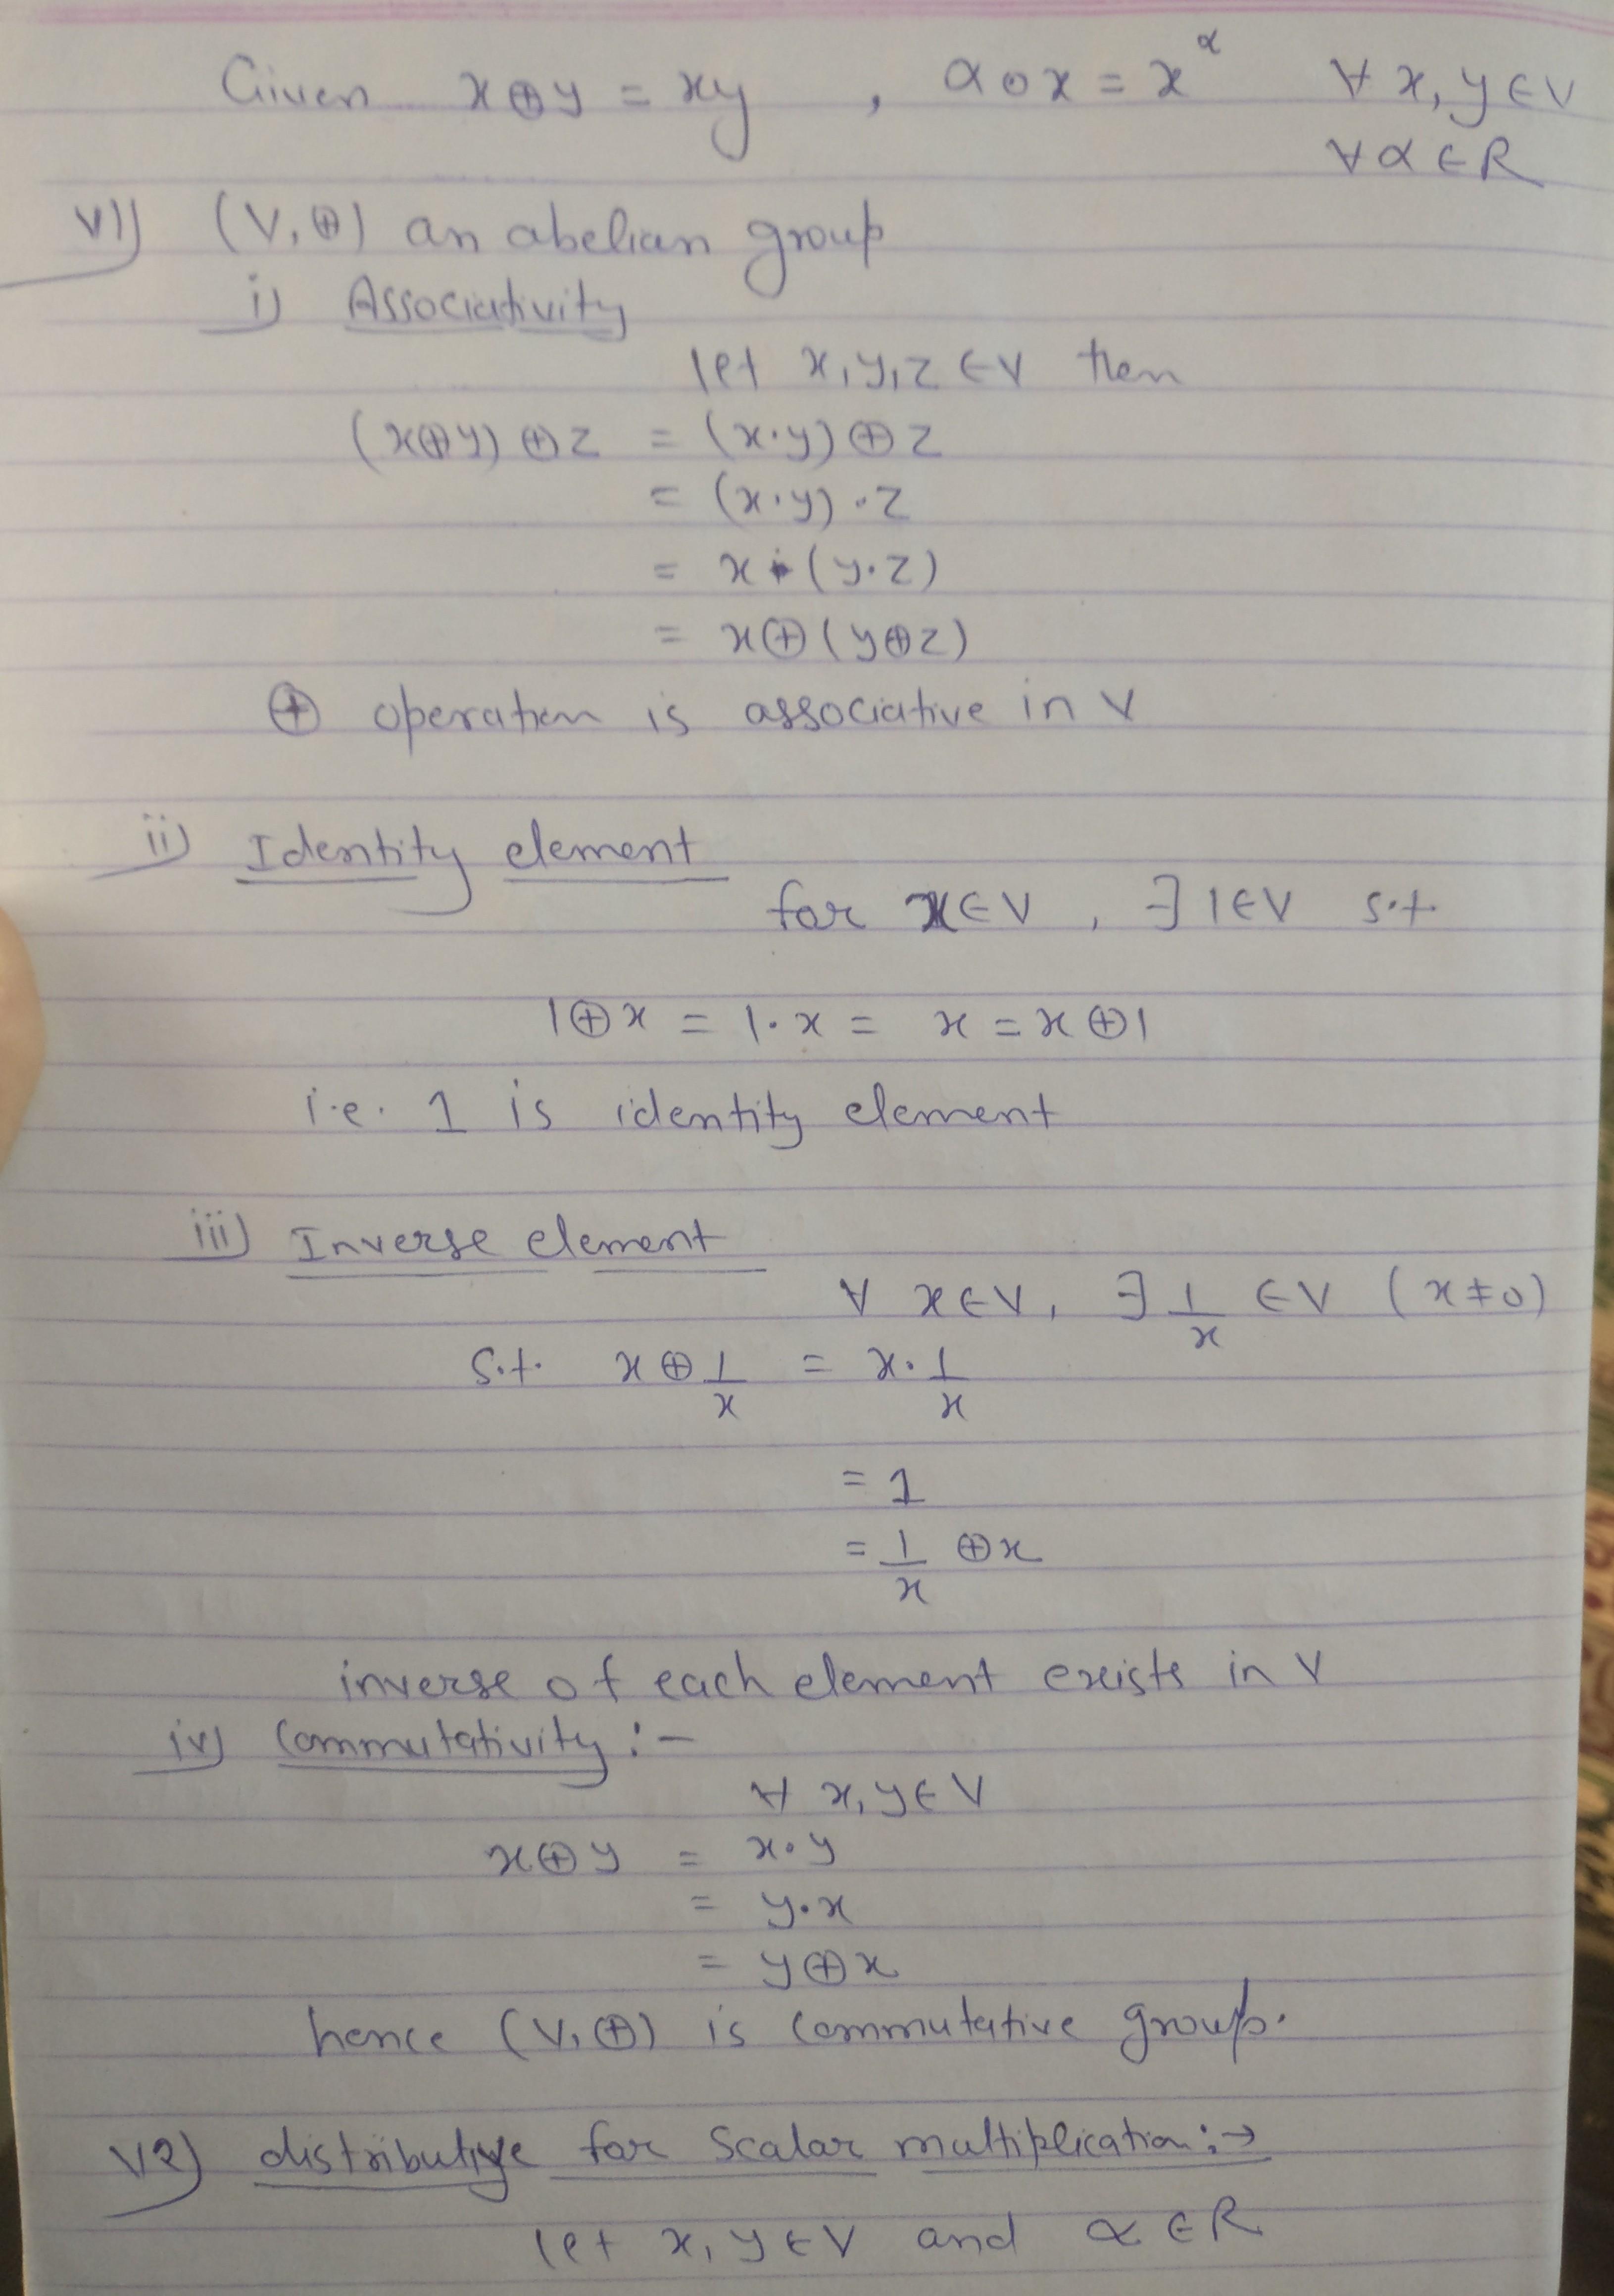 Given x⊕y = xy , α∘x = x^α ∀ x, y ∈ V
∀ α ∈ R
V1) (V, ⊕) an abelian group
i) Associativity
let x, y, z ∈ V then
(x⊕y) ⊕ z = (x·y) ⊕ z
= (x·y) · z
= x · (y·z)
= x ⊕ (y⊕z)
⊕ operation is associative in V
ii) Identity element
for x ∈ V , ∃ 1 ∈ V s.t.
1 ⊕ x = 1 · x = x = x ⊕ 1
i.e. 1 is identity element
iii) Inverse element
∀ x ∈ V, ∃ 1/x ∈ V (x ≠ 0)
s.t. x ⊕ 1/x = x · 1/x
= 1
= 1/x ⊕ x
inverse of each element exists in V
iv) Commutativity :-
∀ x, y ∈ V
x ⊕ y = x·y
= y·x
= y ⊕ x
hence (V, ⊕) is commutative group.
V2) distributive for scalar multiplication :→
let x, y ∈ V and α ∈ R